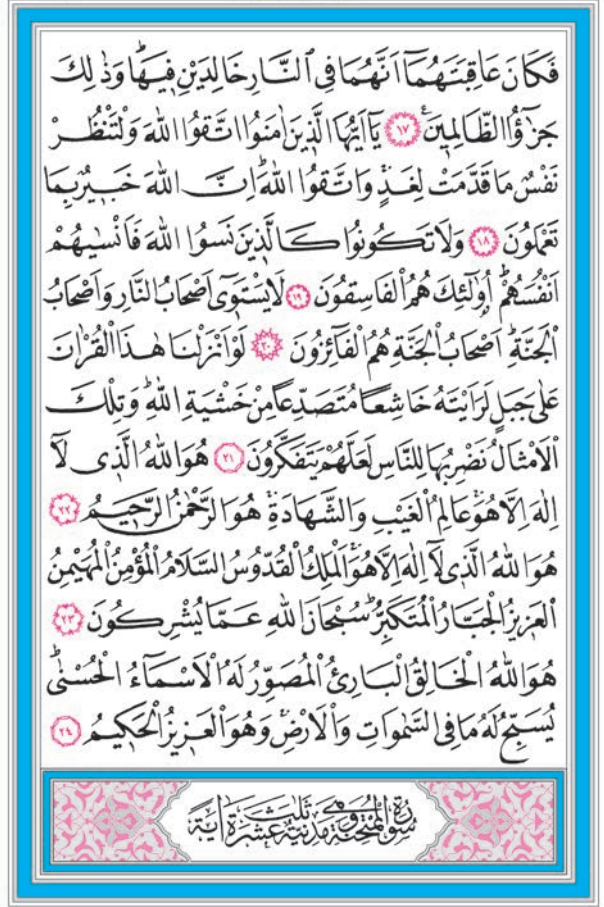 فَكَانَ عَاقِبَتَهُمَٓا اَنَّهُمَا فِي النَّارِ خَالِدَيْنِ ف۪يهَاۜ وَذٰلِكَ
جَزٰٓؤُا الظَّالِم۪ينَ۟ ﴿١٧﴾ يَٓا اَيُّهَا الَّذ۪ينَ اٰمَنُوا اتَّقُوا اللّٰهَ وَلْتَنْظُرْ
نَفْسٌ مَا قَدَّمَتْ لِغَدٍۚ وَاتَّقُوا اللّٰهَۜ اِنَّ اللّٰهَ خَب۪يرٌ بِمَا
تَعْمَلُونَ ﴿١٨﴾ وَلَا تَكُونُوا كَالَّذ۪ينَ نَسُوا اللّٰهَ فَاَنْسٰيهُمْ
اَنْفُسَهُمْۜ اُو۬لٰٓئِكَ هُمُ الْفَاسِقُونَ ﴿١٩﴾ لَا يَسْتَو۪ٓي اَصْحَابُ النَّارِ وَاَصْحَابُ
الْجَنَّةِۜ اَصْحَابُ الْجَنَّةِ هُمُ الْفَٓائِزُونَ ﴿٢٠﴾ لَوْ اَنْزَلْنَا هٰذَا الْقُرْاٰنَ
عَلٰى جَبَلٍ لَرَاَيْتَهُ خَاشِعًا مُتَصَدِّعًا مِنْ خَشْيَةِ اللّٰهِۜ وَتِلْكَ
الْاَمْثَالُ نَضْرِبُهَا لِلنَّاسِ لَعَلَّهُمْ يَتَفَكَّرُونَ ﴿٢١﴾ هُوَ اللّٰهُ الَّذ۪ي لَٓا
اِلٰهَ اِلَّا هُوَۚ عَالِمُ الْغَيْبِ وَالشَّهَادَةِۚ هُوَ الرَّحْمٰنُ الرَّح۪يمُ ﴿٢٢﴾
هُوَ اللّٰهُ الَّذ۪ي لَٓا اِلٰهَ اِلَّا هُوَۚ اَلْمَلِكُ الْقُدُّوسُ السَّلَامُ الْمُؤْمِنُ الْمُهَيْمِنُ
الْعَز۪يزُ الْجَبَّارُ الْمُتَكَبِّرُۜ سُبْحَانَ اللّٰهِ عَمَّا يُشْرِكُونَ ﴿٢٣﴾
هُوَ اللّٰهُ الْخَالِقُ الْبَارِئُ الْمُصَوِّرُ لَهُ الْاَسْمَٓاءُ الْحُسْنٰىۜ
يُسَبِّحُ لَهُ مَا فِي السَّمٰوَاتِ وَالْاَرْضِۚ وَهُوَ الْعَز۪يزُ الْحَك۪يمُ ﴿٢٤﴾
سُورَةُ الْمُمْتَحِنَةِ مَدَنِيَّةٌ وَهِيَ ثَلٰثَ عَشْرَةَ اٰيَةً